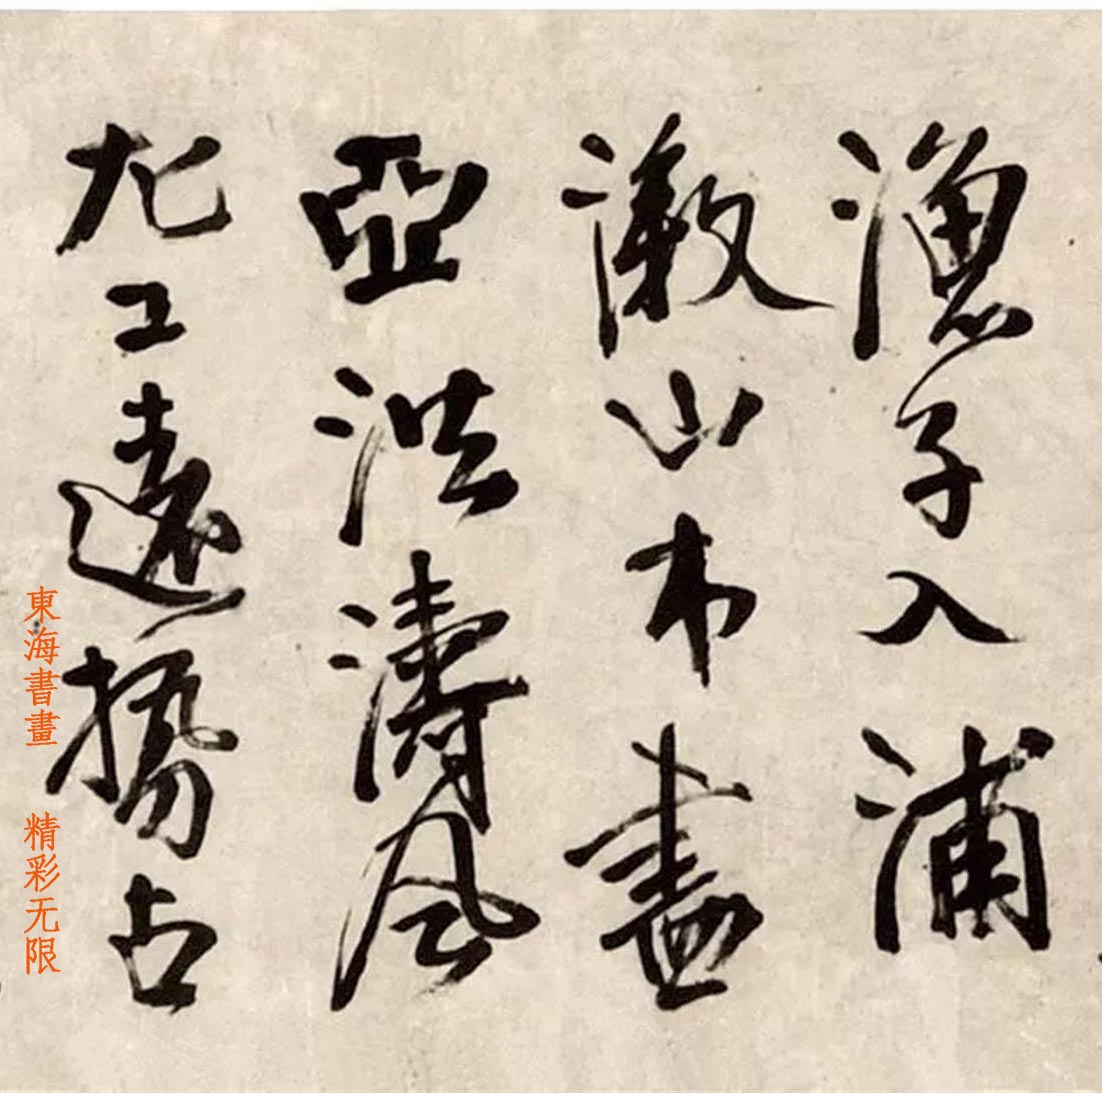 漁子入浦
漵山木盡
亞洪濤風
尤工遠勢古
東海書畫 精彩无限